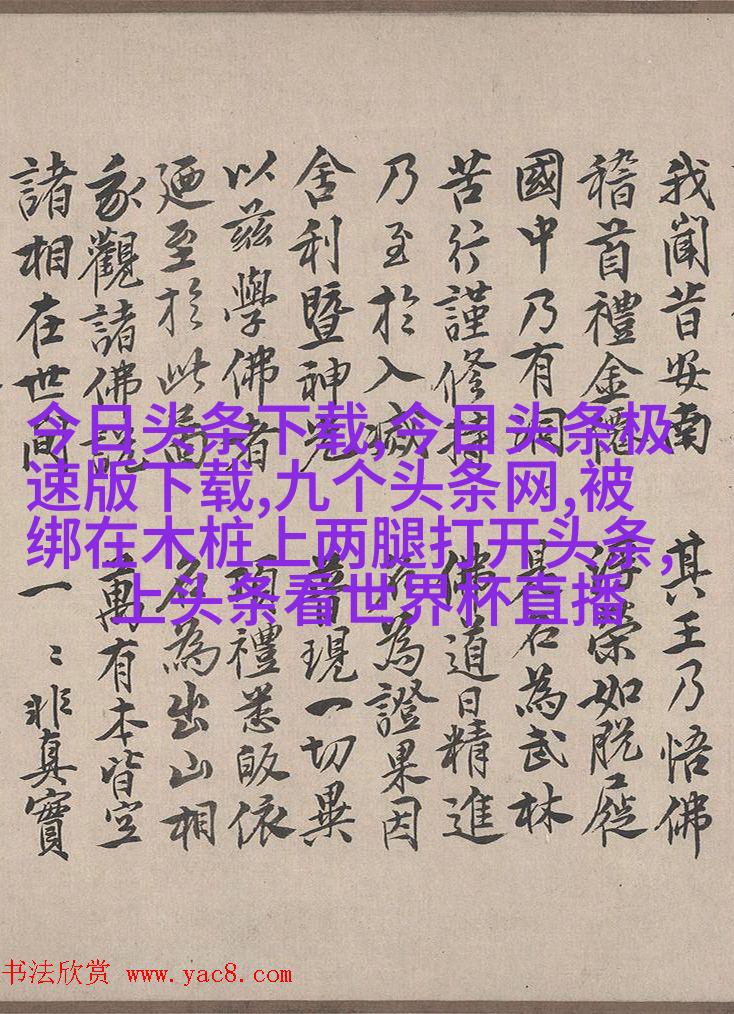 我聞昔安南 其王乃悟佛
稽首禮金僊 浮榮如脫屣
國中乃有洞 是名為武林
苦行謹修持 佛道日精進
乃至於入滅 為證果因
舍利暨神光 普現一切異
以茲學佛者 頂禮悉皈依
廼至於此圖 名為出山相
我觀諸佛說 萬有本皆空
諸相在世間 一〻非真實
今日头条下载,今日头条极
速版下载,九个头条网,被
绑在木桩上两腿打开头条,
上头条看世界杯直播
书法欣赏 www.yac8.com